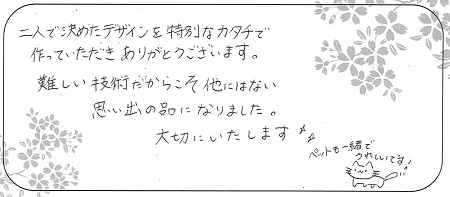 二人で決めたデザインを特別なカタチで
作っていただきありがとうございます。
難しい技術だからこそ他にはない
思い出の品になりました。
大切にいたします
ペットも一緒で
うれしいです!